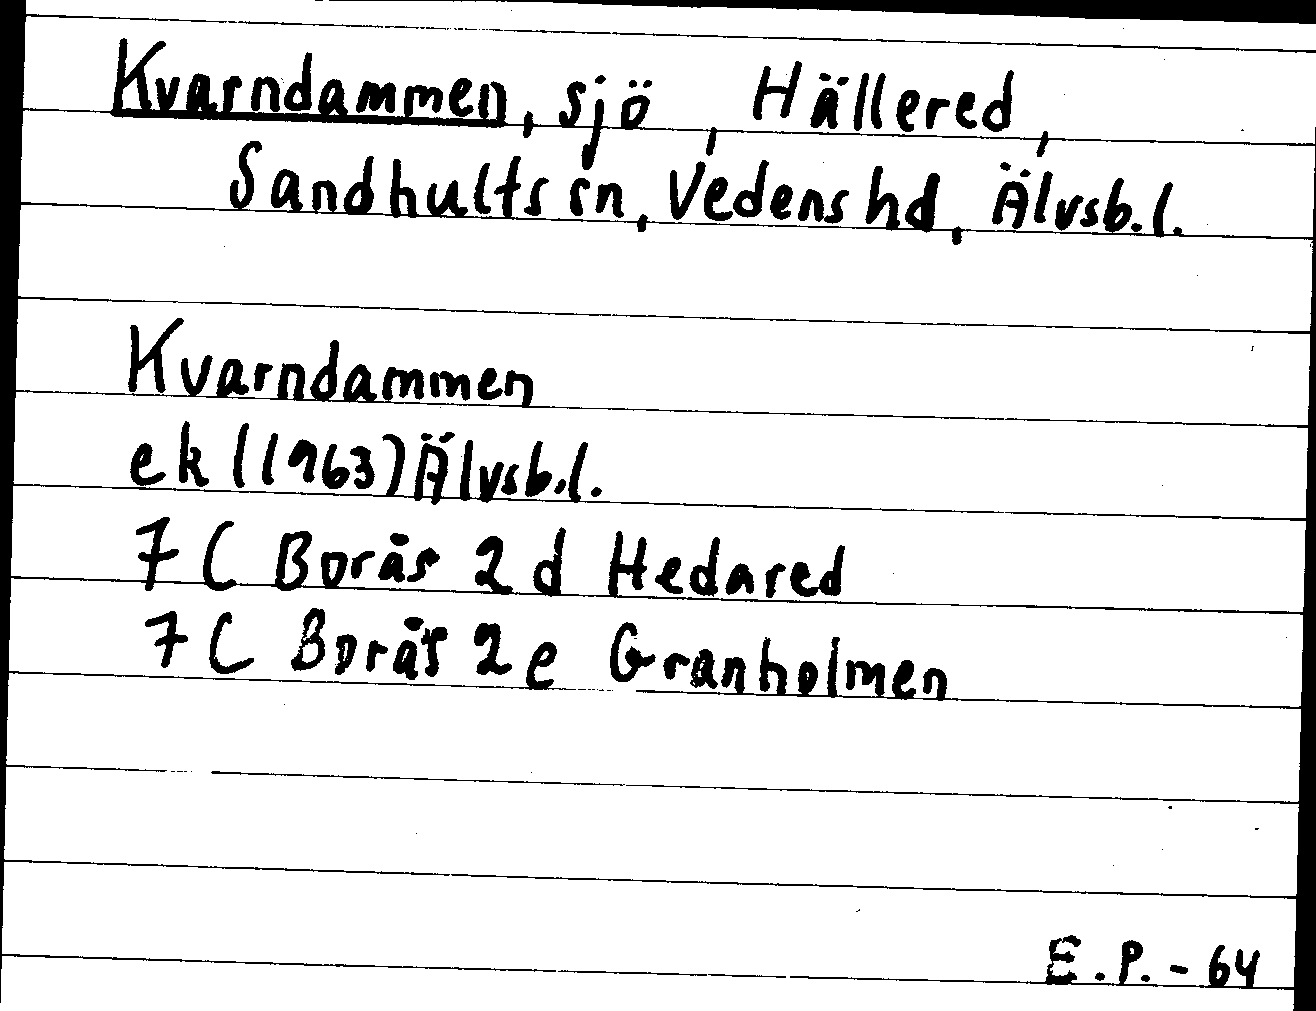 Kvarndammen, sjö, Hällered,
Sandhults sn, Vedens hd, Älvsb.l.
Kvarndammen
ek (1963) Älvsb.l.
7 C Borås 2 d Hedared
7 C Borås 2 e Granholmen
E.P.-64